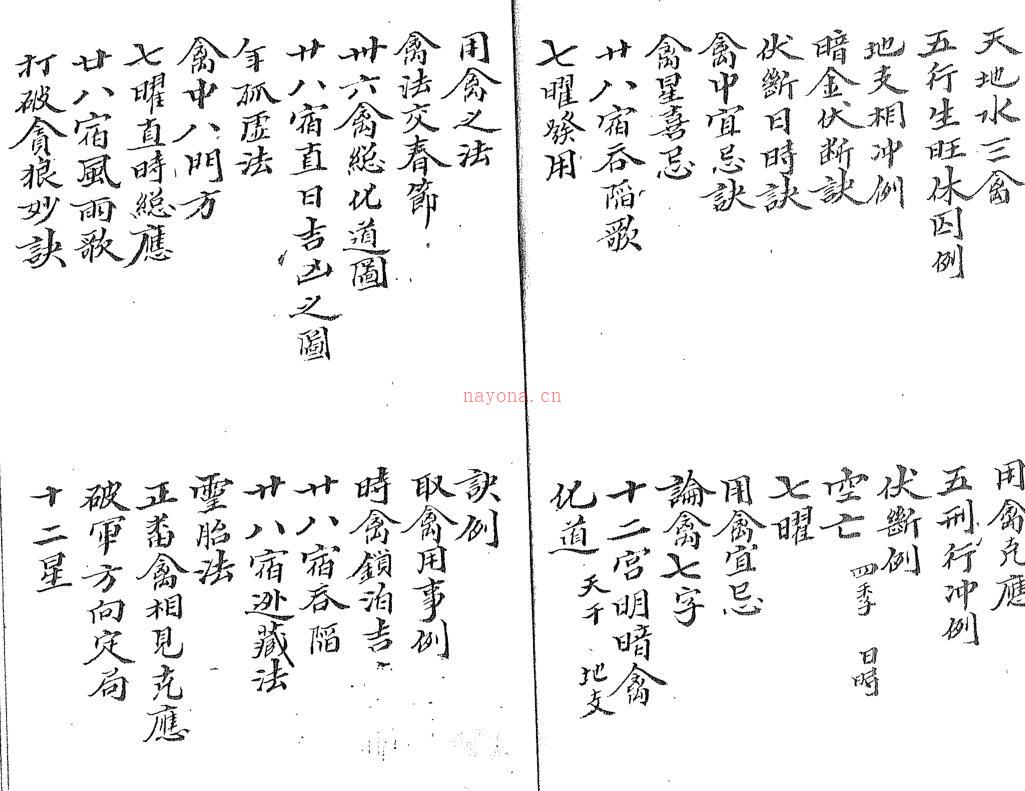 天地水三禽
五行生旺休囚例
地支相冲例
暗金伏断訣
伏斷日時訣
禽中宜忌訣
禽星喜忌
廿八宿吞陷歌
七曜發用
用禽克應
五刑行冲例
伏斷例
空亡 四季 日時
七曜
用禽宜忌
論禽七字
十二宮明暗禽
化道 天干 地支
用禽之法
禽法交春節
卅六禽総化道圖
廿八宿直日吉凶之圖
年孤虛法
禽中八門方
七曜直時総應
廿八宿風雨歌
打破貪狼妙訣
訣例
取禽用事例
時禽鎖泊吉
廿八宿吞陷
廿八宿迯藏法
靈胎法
正畨禽相見克應
破軍方向定局
十二星
nayona.cn